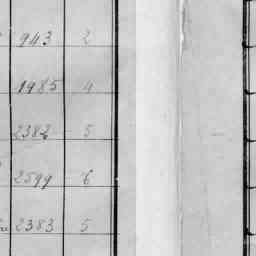 943 2
1985 4
2382 5
2599 6
2383 5